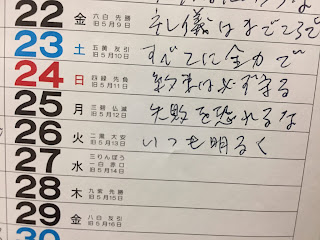 22 金 六白 先勝 旧5月9日 礼儀はまごころで
23 土 五黄 友引 旧5月10日 すべてに全力で
24 日 四緑 先負 旧5月11日 約束は必ず守る
25 月 三碧 仏滅 旧5月12日 失敗を恐れるな
26 火 二黒 大安 旧5月13日 いつも明るく
27 水 三りんぼう 一白 赤口 旧5月14日
28 木 九紫 先勝 旧5月15日
29 金 八白 友引 旧5月16日
30